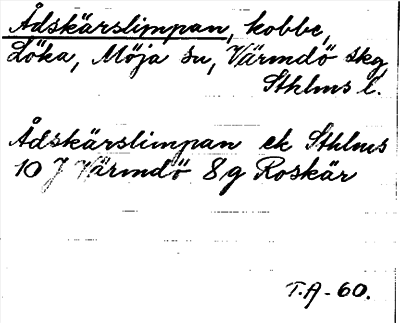 Ådskärslimpan, kobbe,
Löka, Möja sn, Värmdö skg
Sthlms l.
Ådskärslimpan ek Sthlms
10 J Värmdö 8g Roskär
T.A-60.